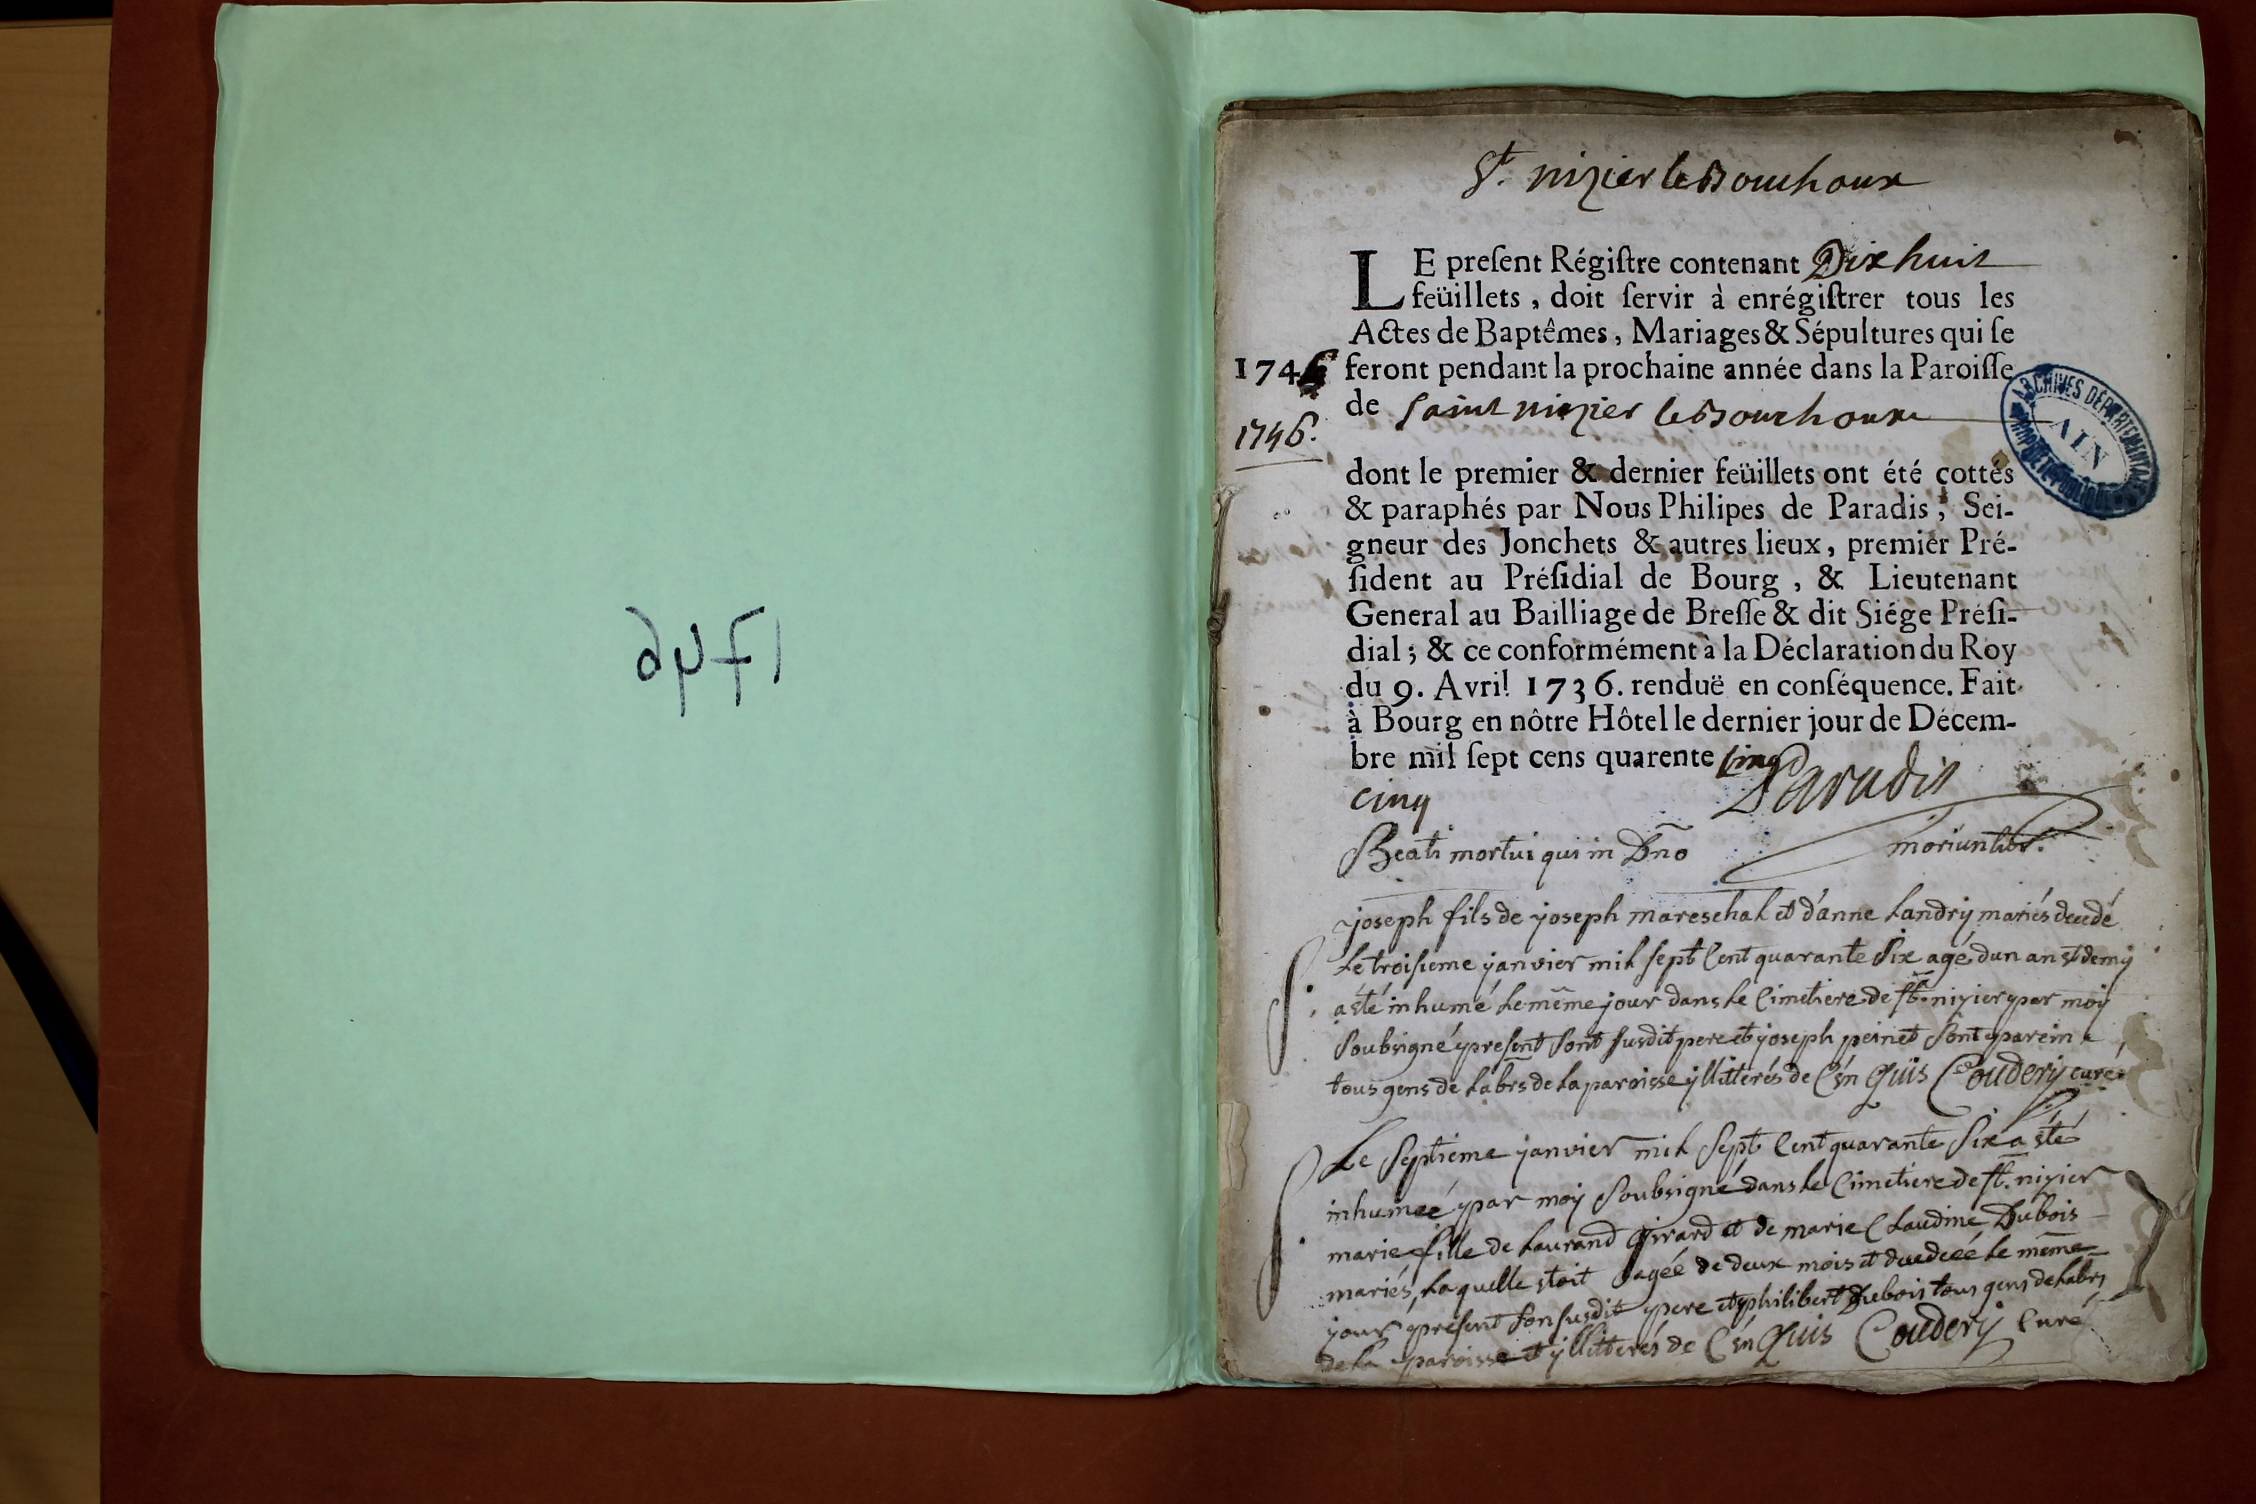 1746
St. nizier le Bouchoux
LE preſent Régiſtre contenant Dix huit
feüillets, doit ſervir à enrégiſtrer tous les
Actes de Baptêmes, Mariages & Sépultures qui ſe
1746 feront pendant la prochaine année dans la Paroiſſe
de Saint nizier le Bouchoux
1746.
dont le premier & dernier feüillets ont été cottés
& paraphés par Nous Philipes de Paradis, Sei-
gneur des Jonchets & autres lieux, premier Pré-
ſident au Préſidial de Bourg, & Lieutenant
General au Bailliage de Breſſe & dit Siége Préſi-
dial; & ce conformément à la Déclaration du Roy
du 9. Avril 1736. renduë en conſéquence. Fait
à Bourg en nôtre Hôtel le dernier jour de Décem-
bre mil ſept cens quarente cinq
cinq Paradis
Beati mortui qui in Dño moriuntur.
joseph fils de joseph mareschal et d'anne Landry mariés decedé
Le troisieme janvier mil sept Cent quarante Six agé dun an et demy
a été inhumé Le même jour dans Le Cimetiere de St. nizier par moy
Soubsigné present Sont susdit pere et joseph peinet Sont parein
tous gens de Labrs de La paroisse yllitterés de Ce enquis Coudery curé
Le Septieme janvier mil Sept Cent quarante Six a été
inhumeé par moy Soubsigné dans Le Cimetiere de St. nizier
marie fille de Laurand Girard et de marie Claudine Dubois
mariés, Laquelle etoit agée de deux mois et decedeé Le même
jour present Son susdit pere et philibert Dubois tous gens de Labrs
de La paroisse et yllitterés de Ce enquis Coudery Curé
ARCHIVES DÉPARTEMENTALES
AIN